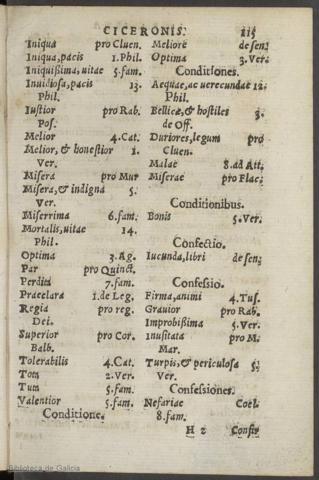 CICERONIS. 115
Iniqua pro Cluen.
Iniqua, pacis 1. Phil.
Iniquißima, uitae 5. fam.
Inuidiosa, pacis 13.
Phil.
Iustior pro Rab.
Pos.
Melior 4. Cat.
Melior, & honestior 1.
Ver.
Misera pro Mur
Misera, & indigna 5.
Ver.
Miserrima 6. fam.
Mortalis, uitae 14.
Phil.
Optima 3. Ag.
Par pro Quinct.
Perdita 7. fam.
Praeclara 1. de Leg.
Regia pro reg.
Dei.
Superior pro Cor.
Balb.
Tolerabilis 4. Cat.
Tota 2. Ver.
Tum 5. fam.
Valentior 5. fam.
Conditione.
Meliore de sen.
Optima 3. Ver.
Conditiones.
Aequae, ac uerecundae 12.
Phil.
Bellicae, & hostiles 3.
de Off.
Duriores, legum pro
Cluen.
Malae 8. ad Att.
Miserae pro Flac.
Conditionibus.
Bonis 5. Ver.
Confectio.
Iucunda, libri de sen.
Confessio.
Firma, animi 4. Tus.
Grauior pro Rab.
Improbißima 5. Ver.
Inusitata pro M.
Mar.
Turpis, & periculosa 5.
Ver.
Confessiones.
Nefariae Coel.
8. fam.
H 2 Confir
Biblioteca de Galicia